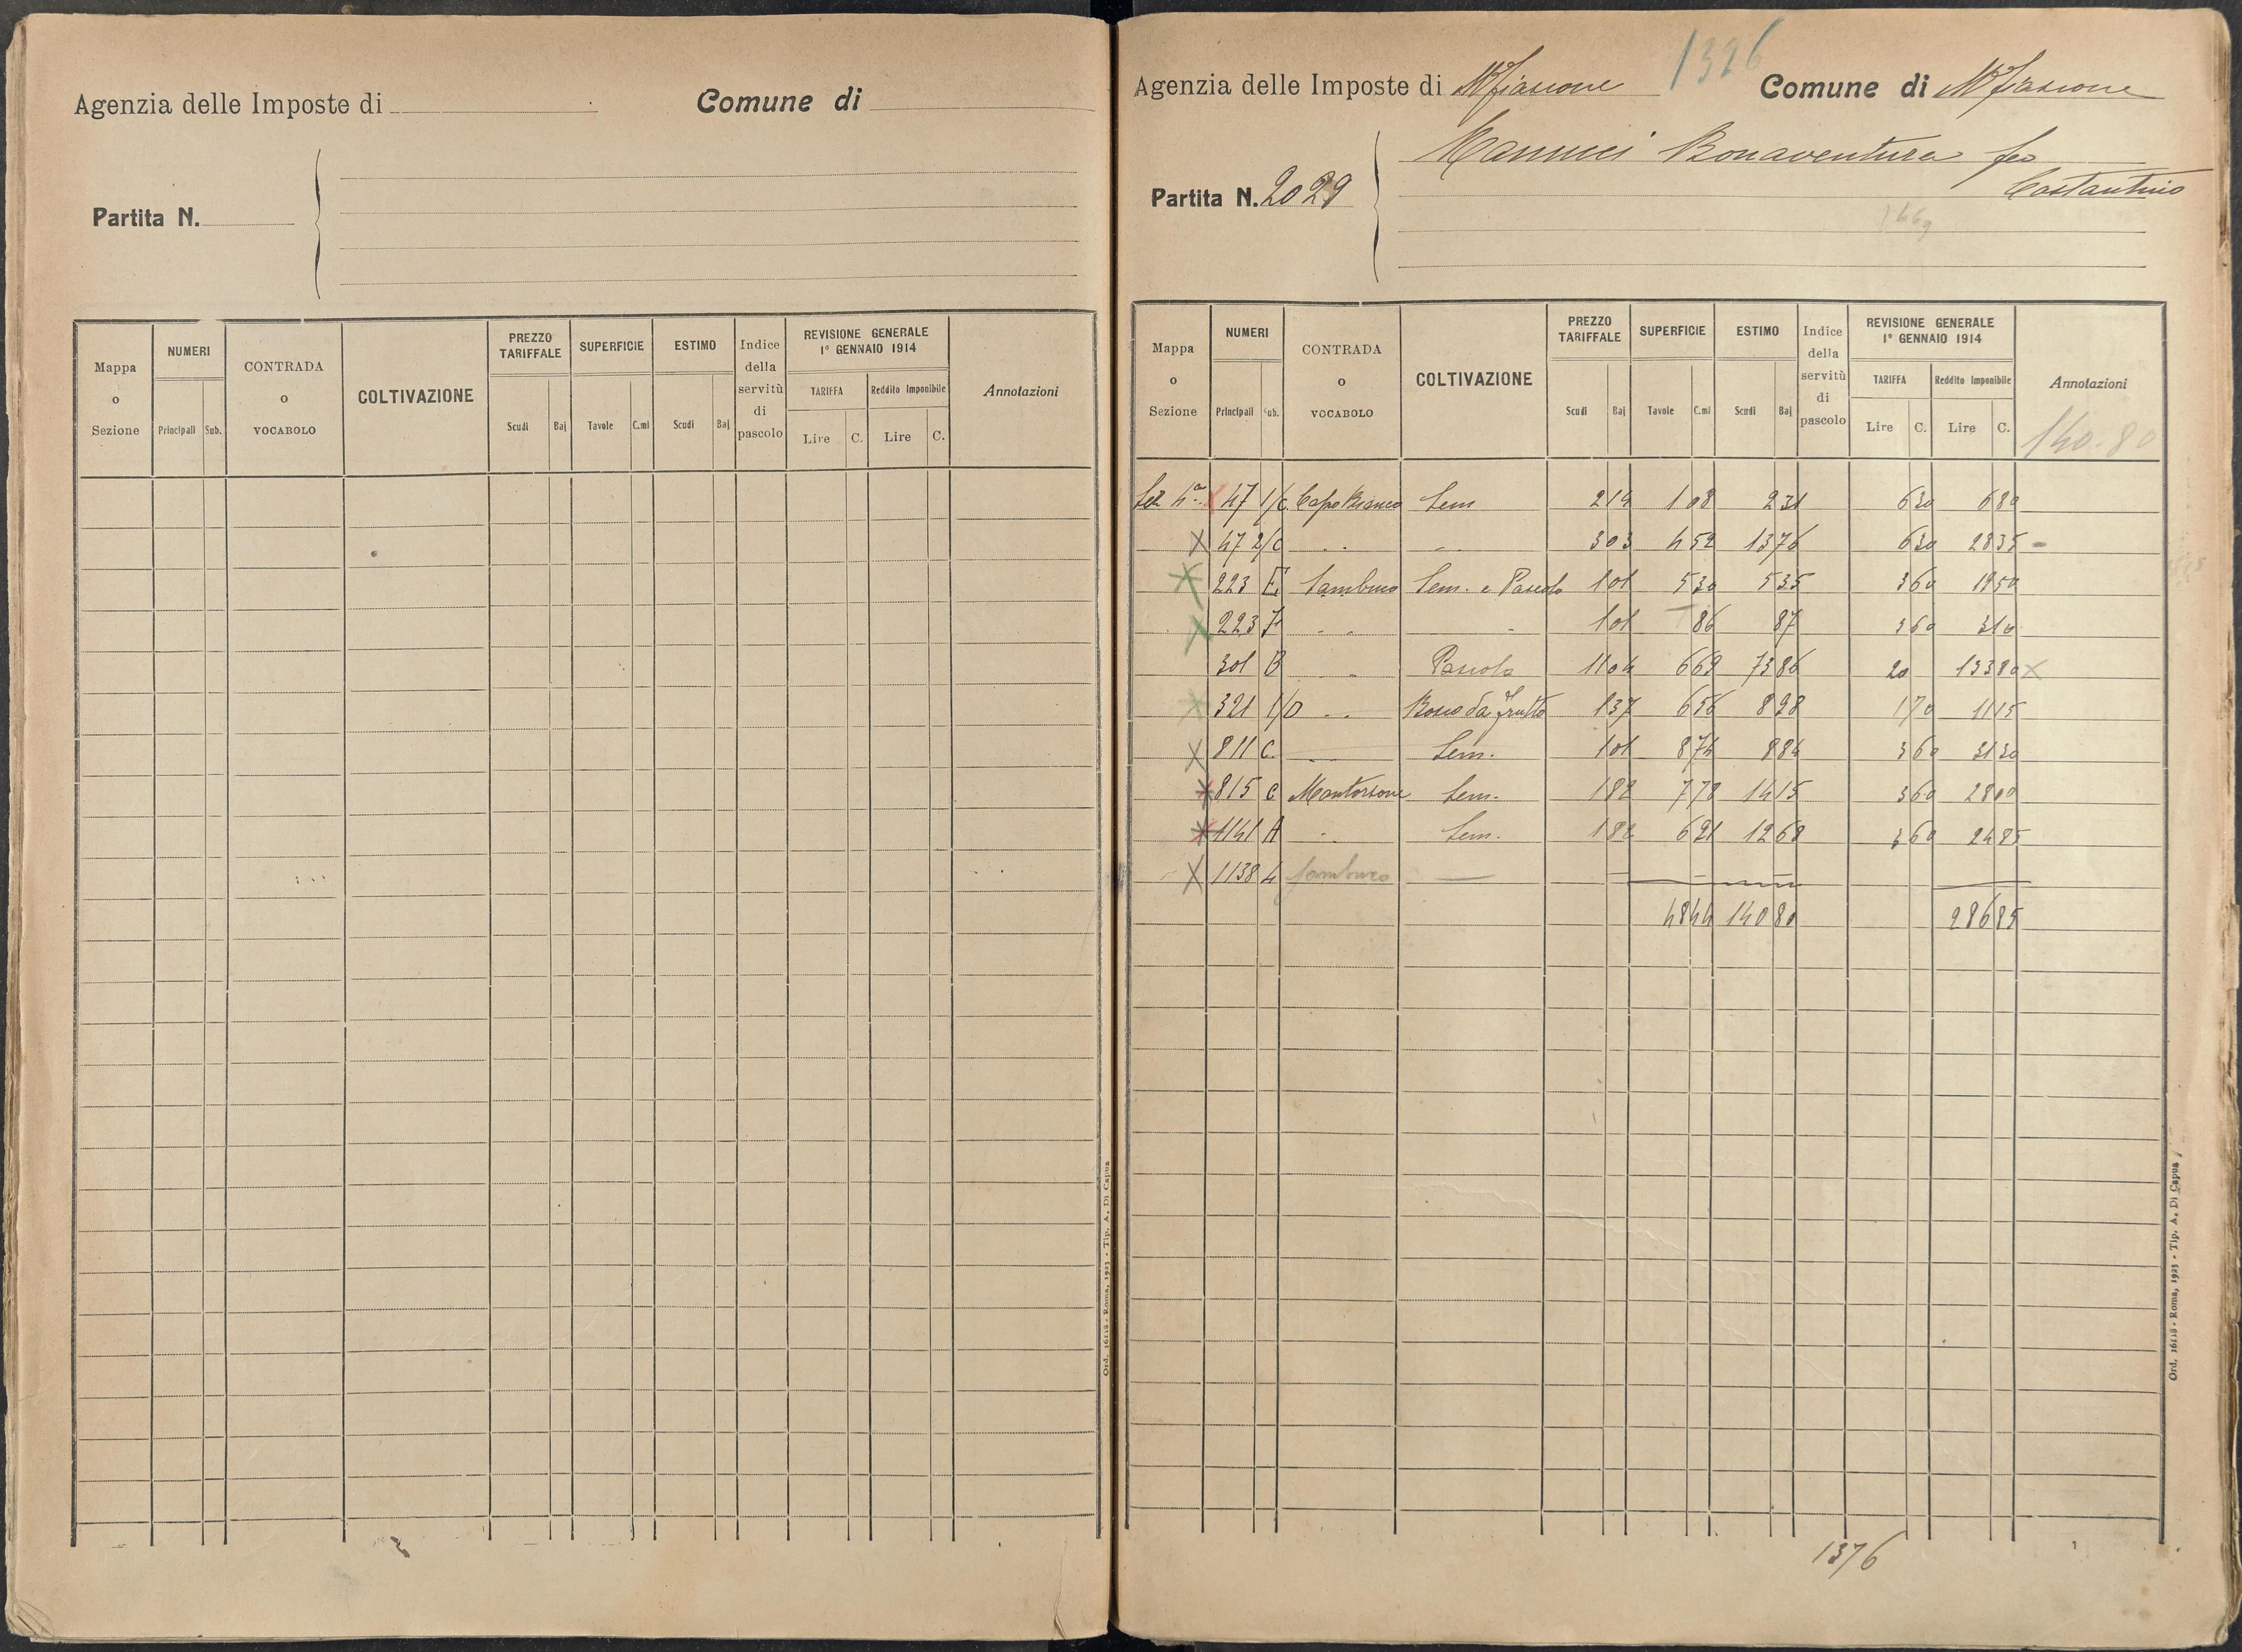 Agenzia delle Imposte di
Comune di
Partita N.
Mappa o Sezione
NUMERI
Principali
Sub.
CONTRADA o VOCABOLO
COLTIVAZIONE
PREZZO TARIFFALE
Scudi
Baj
SUPERFICIE
Tavole
C.mi
ESTIMO
Scudi
Baj
Indice della servitù di pascolo
REVISIONE GENERALE 1° GENNAIO 1914
TARIFFA
Lire
C.
Reddito Imponibile
Lire
C.
Annotazioni
Ord. 16118 - Roma, 1923 - Tip. A. Di Capua
1326
Agenzia delle Imposte di Mfiascone
Comune di Mfiascone
Partita N. 2029
Mannuci Bonaventura fu
Costantino
1669
Mappa o Sezione
NUMERI
Principali
Sub.
CONTRADA o VOCABOLO
COLTIVAZIONE
PREZZO TARIFFALE
Scudi
Baj
SUPERFICIE
Tavole
C.mi
ESTIMO
Scudi
Baj
Indice della servitù di pascolo
REVISIONE GENERALE 1° GENNAIO 1914
TARIFFA
Lire
C.
Reddito Imponibile
Lire
C.
Annotazioni
140.80
Sez 4ª X 47 1/C Capo Bianco Sem 214 108 231 630 680
X 47 2/C " " 303 452 1376 630 2835
223 E Tamburo Sem. e Pascolo 101 530 535 360 1950
X 223 F " " 101 86 87 360 310
301 B " Pascolo 1104 669 7386 20 13380 X
321 1/D " Bosco da frutto 137 656 898 170 1115
X 811 C " Sem. 101 874 884 360 3130
815 C Montorsone Sem. 182 778 1415 360 2800
1141 A " Sem. 182 691 1268 360 2485
X 1138 4 Tamburo —
4844 14080 28685
1376
Ord. 16118 - Roma, 1923 - Tip. A. Di Capua